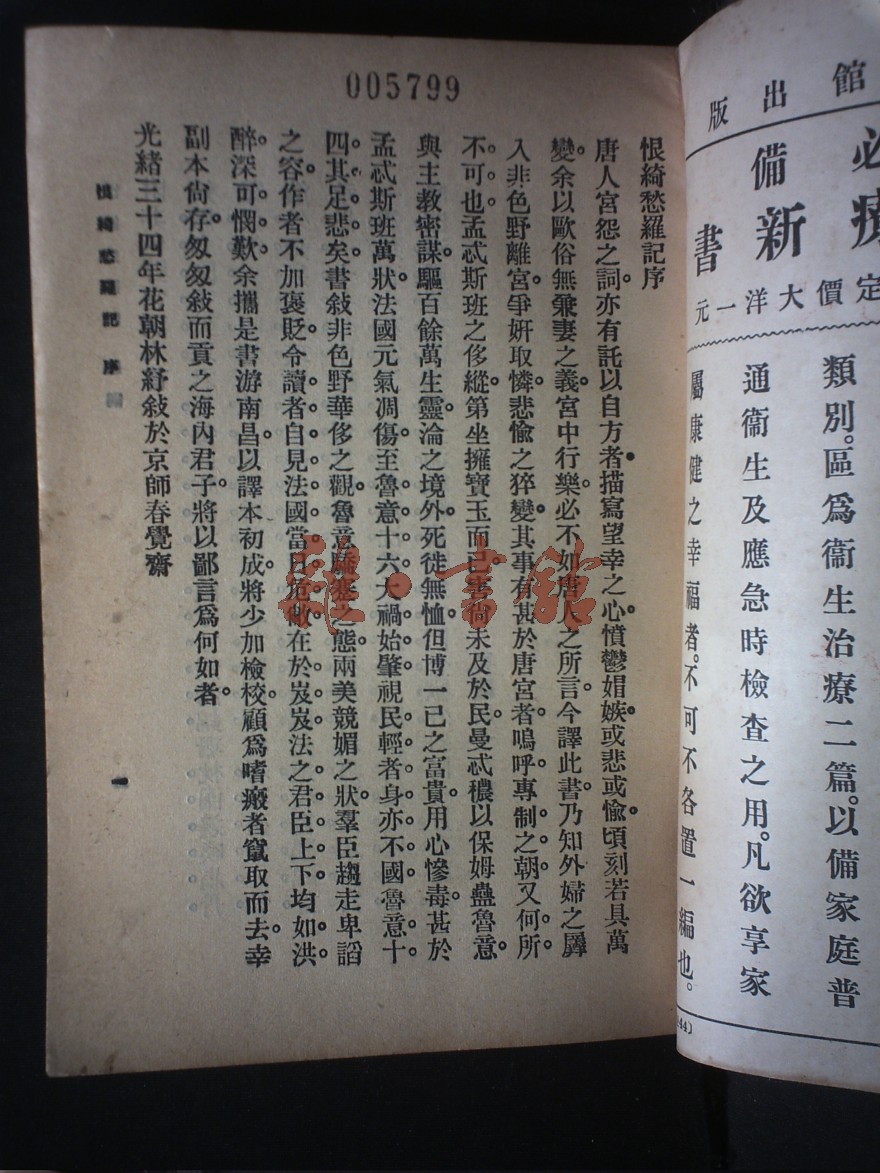 005799
恨綺愁羅記序
唐人宮怨之詞亦有託以自方者描寫望幸之心憤鬱媢嫉或悲或愉頃刻若具萬
變余以歐俗無兼妻之義宮中行樂必不如唐人之所言今譯此書乃知外婦之羼
入非色野離宮爭妍取憐悲愉之猝變其事有甚於唐宮者嗚呼專制之朝又何所
不可也孟忒斯班之侈縱第坐擁寶玉而已害尚未及於民曼忒穠以保姆蠱魯意
與主教密謀驅百餘萬生靈淪之境外死徙無恤但博一己之富貴用心慘毒甚於
孟忒斯班萬狀法國元氣凋傷至魯意十六大禍始肇視民輕者身亦不國魯意十
四其足悲矣書敍非色野華侈之觀魯意驕蹇之態兩美競媚之狀羣臣趨走卑謟
之容作者不加褒貶令讀者自見法國當日危敝在於岌岌法之君臣上下均如洪
醉深可憫歎余攜是書游南昌以譯本初成將少加檢校顧爲嗜瘢者竄取而去幸
副本尙存匆匆敍而貢之海內君子將以鄙言爲何如者
光緒三十四年花朝林紓敍於京師春覺齋
恨綺愁羅記 序
一
館出版
必備
療新書
定價大洋一元
類別區爲衞生治療二篇以備家庭普
通衞生及應急時檢查之用凡欲享家
屬康健之幸福者不可不各置一編也。
44)
雅·書館